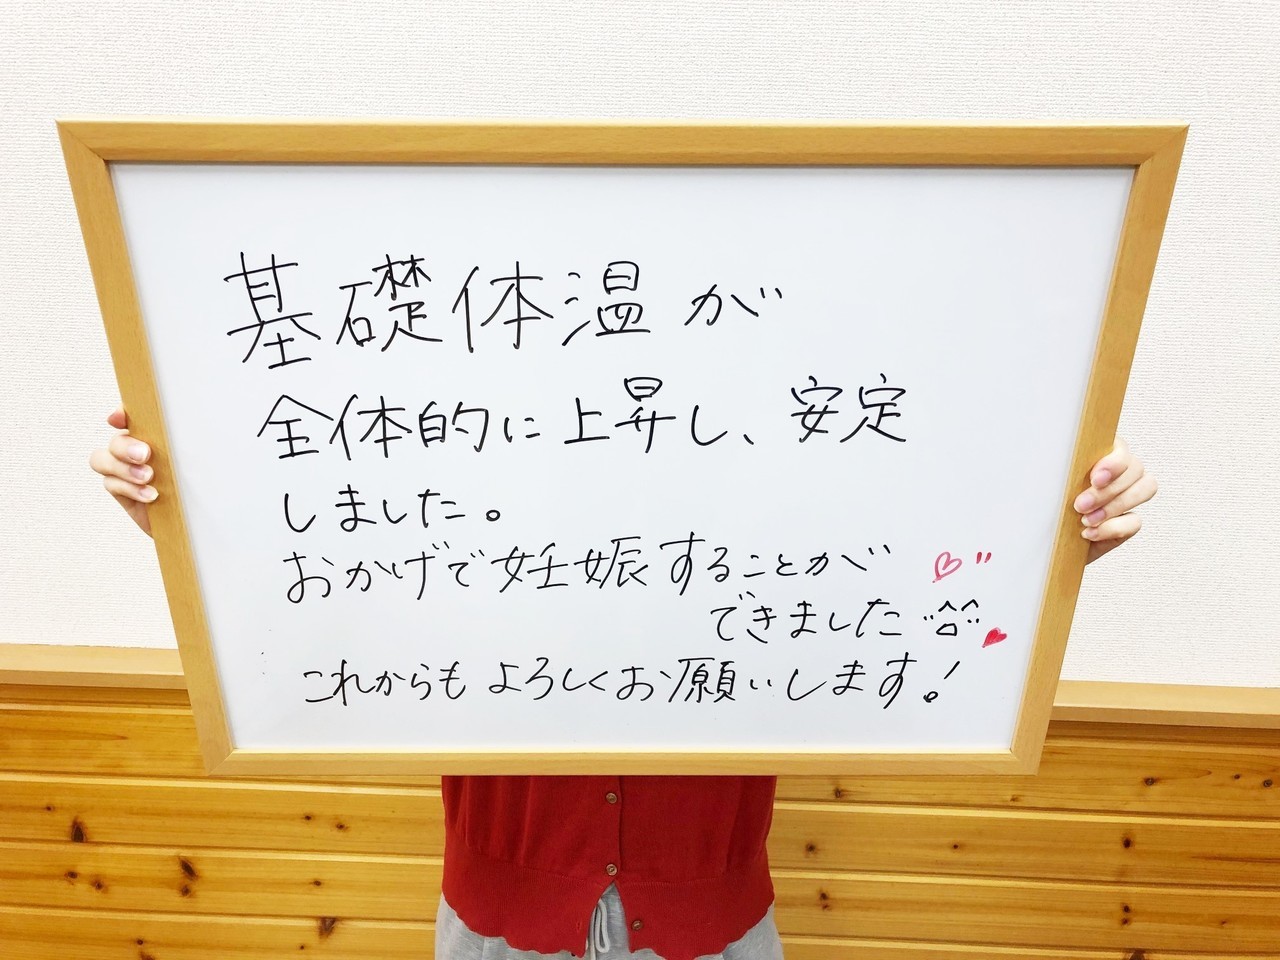 基礎体温が
全体的に上昇し、安定
しました。
おかげで妊娠することが
できました
これからもよろしくお願いします!